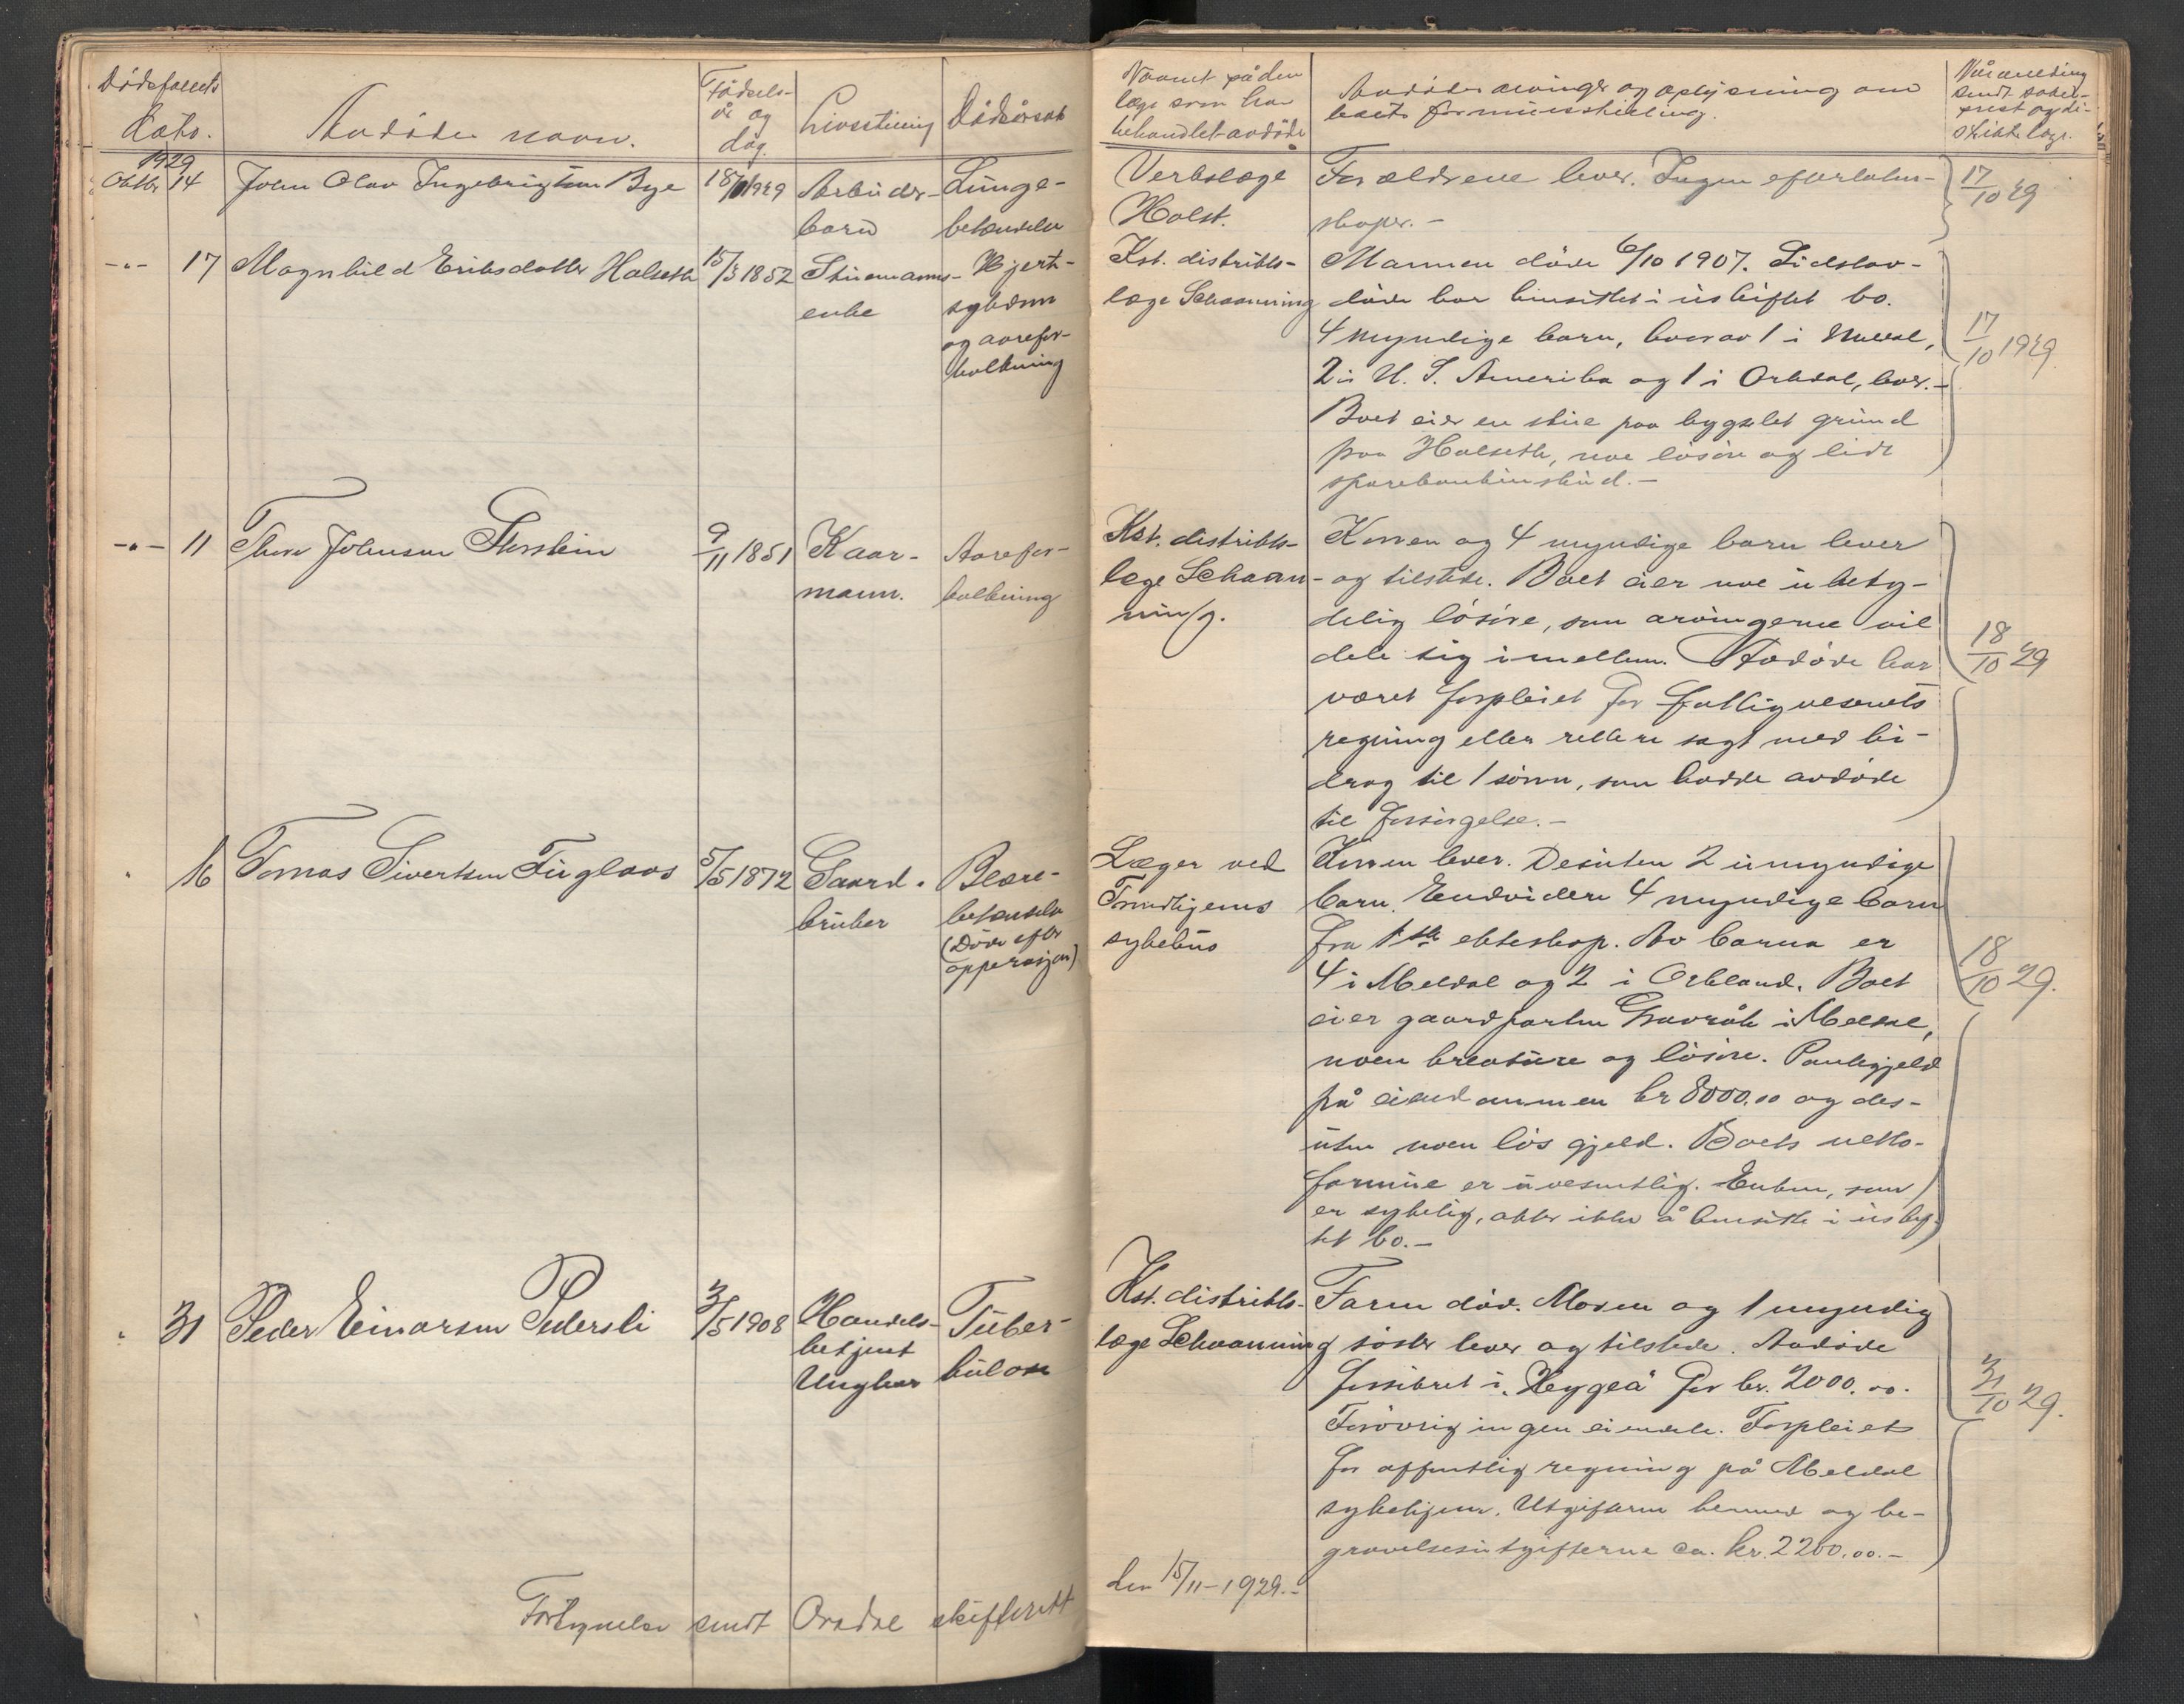 Dödsfallets
dato.
Avdödes navn.
Födsels-
år og
dag.
Livsstilling
Dödsårsak
Navnet på den
læge som har
behandlet avdöde
Avdödes arvinger og oplysning om
boets formuesstilling.
Når melding
sendt sokne-
prest og di-
striktslæge.
1929
Oktbr 14
John Olav Ingebrigtsen Bye
1929
Arbeider-
barn
Lunge-
betændelse
Verkslæge
Holst.
Forældrene lever. Ingen efterlaten-
skaper. -
17/10 29
-"- 17
Magnhild Eriksdatter Halseth
15/3 1852
Stuemanns-
enke
Hjerte-
sykdom
og aarefor-
kalkning
Kst. distrikts-
læge Schaanning
Mannen döde 6/10 1907. Sidstav-
döde har hensittet i uskiftet bo.
4 myndige barn, hvorav 1 i Meldal,
2 i U. S. Amerika og 1 i Orkdal, lever. -
Boet eier en stue paa bygslet grund
paa Halseth, noe lösöre og lidt
sparebankinskud. -
17/10 1929
-"- 11
Thore Johnsen Storstein
9/11 1851
Kaar-
mann.
Aarefor-
kalkning
Kst. distrikts-
læge Schaan-
ning.
Konen og 4 myndige barn lever
og tilstede. Boet eier noe ubety-
delig lösöre, som arvingerne vil
dele sig imellem. Avdöde har
været forpleiet for fattigvesenets
regning eller rettere sagt med bi-
drag til 1 sönn, som hadde avdöde
til forsörgelse. -
18/10 29
" 16
Tomas Sivertsen Fuglaas
5/5 1872
Gaard-
bruker
Blære-
betændelse
(Döde efter
opperasjon)
Læger ved
Trondhjems
sykehus
Konen lever. Desuten 2 umyndige
barn. Endvidere 4 myndige barn
fra 1ste ekteskap. Av barna er
4 i Meldal og 2 i Orkland. Boet
eier gaardparten i Meldal,
noen kreature og lösöre. Pantegjeld
på eiendommen kr 8000.00 og des-
uten noen lös gjeld. Boets netto-
formue er uvesentlig. Enken, som
er sykelig, akter ikke å hensitte i uskif-
tet bo. -
18/10 29.
" 31
Peder Einarsen Pedersli
3/5 1908
Handels-
betjent
Ungkar
Tuber-
kulose
Kst. distrikts-
læge Schaanning
Faren död. Moren og 1 myndig
söster lever og tilstede. Avdöde
forsikret i "Hygea" for kr. 2000.00.
Forövrig ingen eiendele. Forpleiet
for offentlig regning på Meldal
sykehjem. Utgifterne hermed og be-
gravelsesutgifterne ca. kr. 2200.00. -
31/10 29.
Fortegnelse sendt Orkdal skifterett
den 15/11 - 1929. -